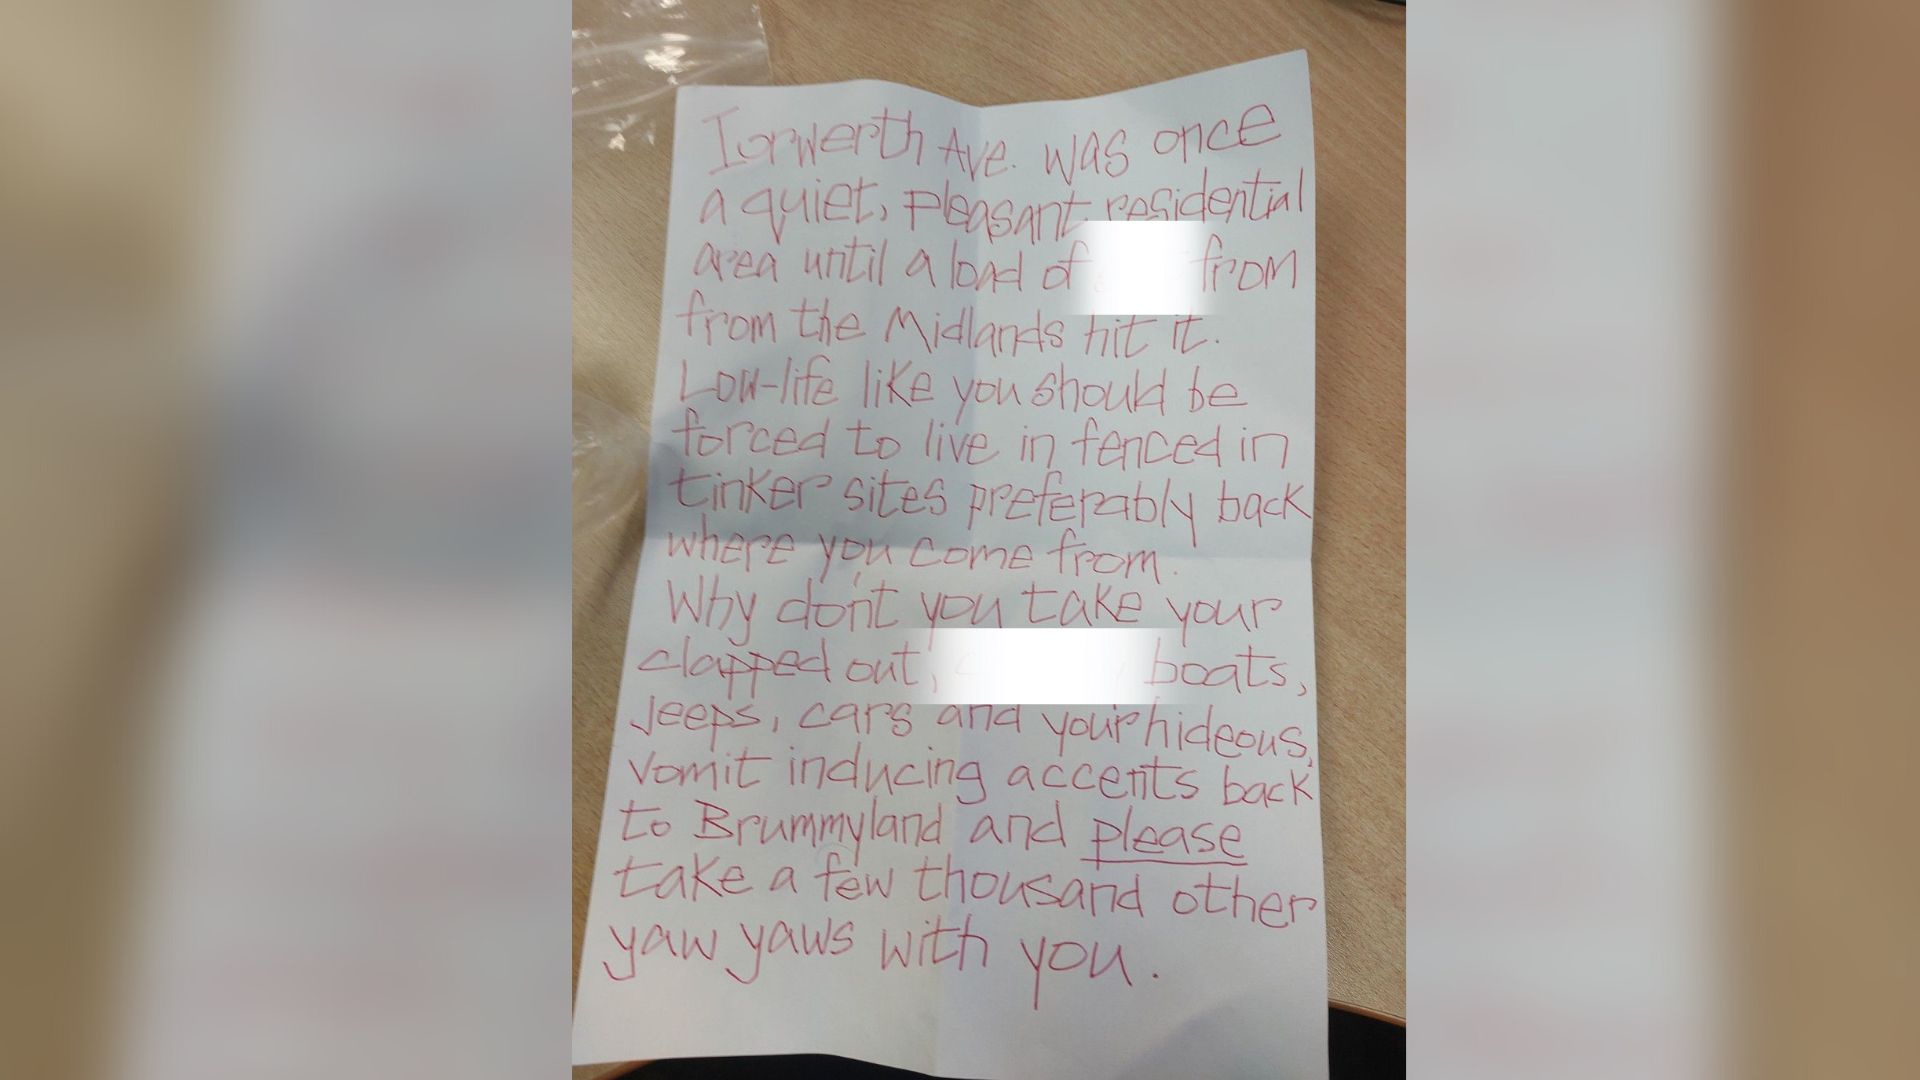 Iorwerth Ave. was once
a quiet, pleasant residential
area until a load of from
from the Midlands hit it.
Low-life like you should be
forced to live in fenced in
tinker sites preferably back
where you come from.
Why don't you take your
clapped out, boats,
Jeeps, cars and your hideous,
vomit inducing accents back
to Brummyland and please
take a few thousand other
yaw yaws with you.